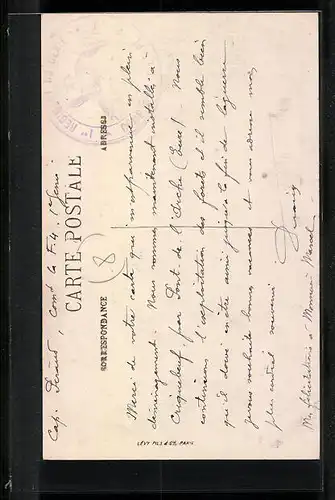 CARTE POSTALE
CORRESPONDANCE
ADRESSE
Cap. Comt la F.4. 1er Génie
8
Merci de votre carte qui m'est parvenue en plein
déménagement. Nous sommes maintenant installés à
Criquebeuf, par Pont de l'Arche (Eure). Nous
continuons l'exploitation des forêts et il semble bien
qu'il doive en être ainsi jusqu'à la fin de la guerre
Je vous souhaite bonnes vacances et vous adresse mon
plus cordial souvenir
Mes félicitations à Monsieur Marcel
LÉVY FILS & Cie, PARIS